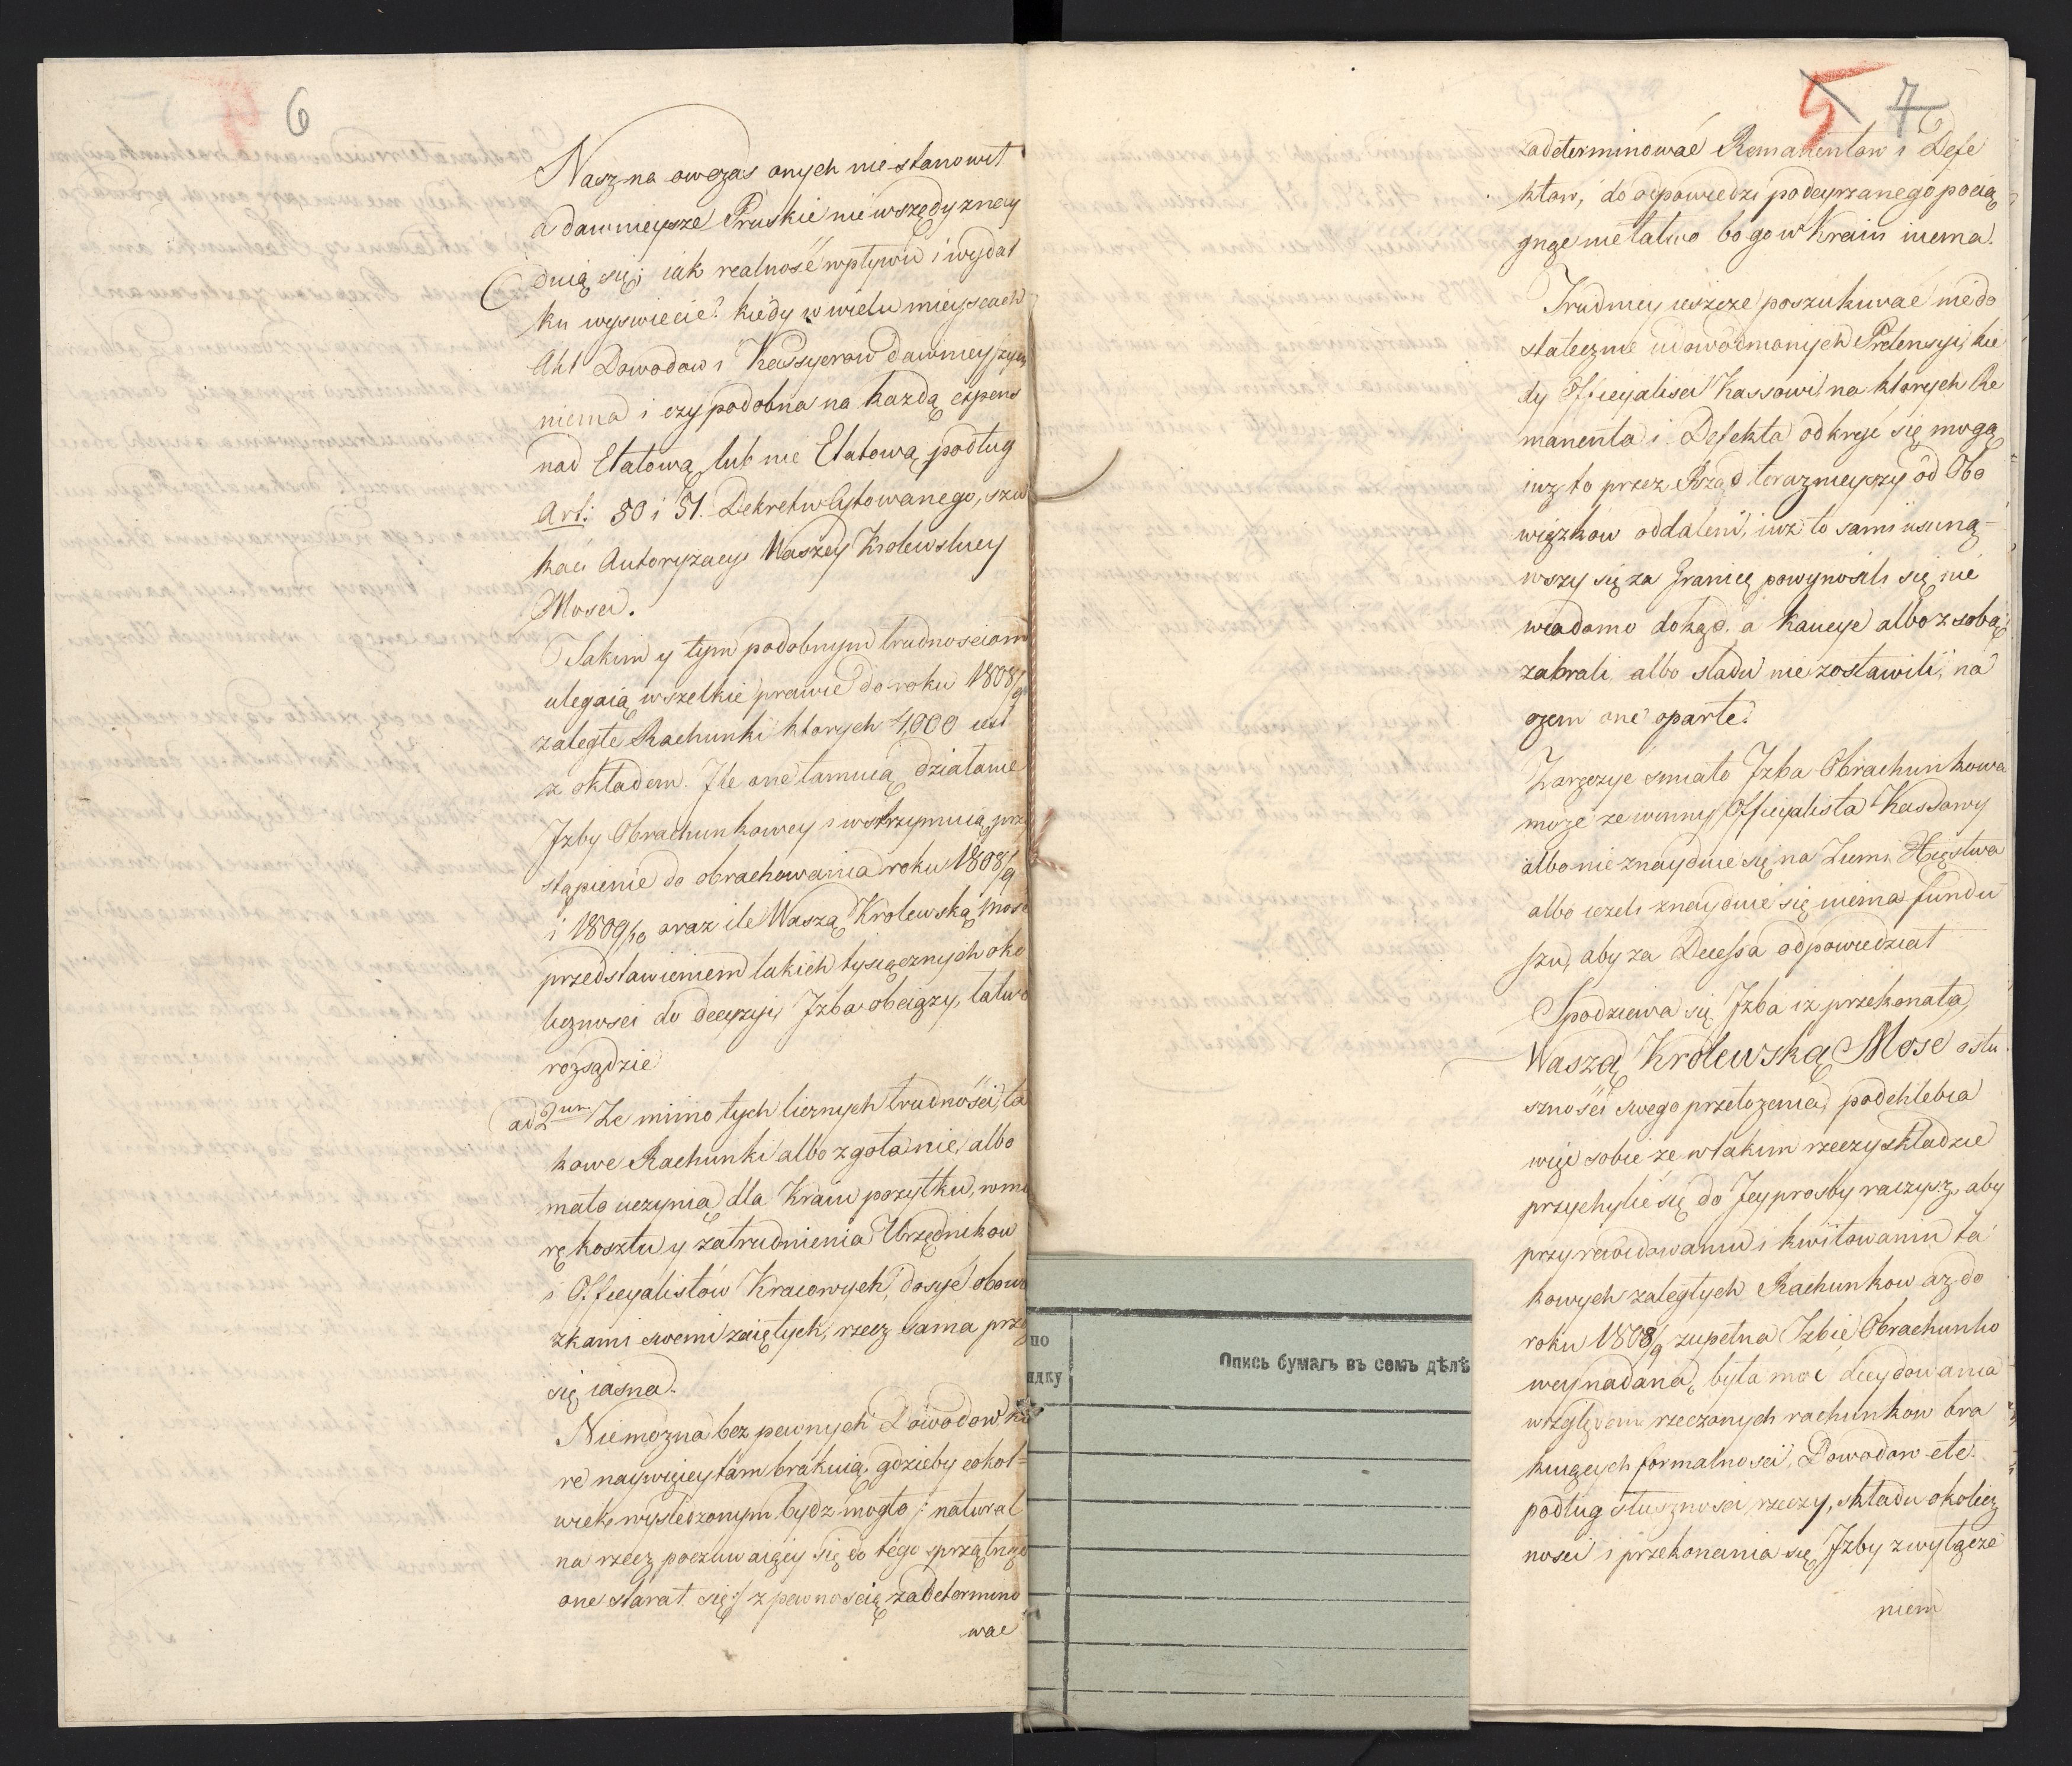 6
Nasz na owczas onych nie stanowił
a dawnieysze Pruskie nie wszędy znay
duią się; iak realność wpływu i wydat
ku wyswiecić? kiedy w wielu mieyscach
Akt Dowodow i Kassyerow dawnieyszych
niema i czy podobna na każdą expens
nad Etatową lub nie Etatową podług
Art: 50 i 51. Dekretu Cytowanego, szu
kać Autoryzacyi Waszey Krolewskiey
Mości.
Takim y tym podobnym trudnościom
ulegaią wszelkie prawie do roku 1808/9
zaległe Rachunki ktorych 4,000 iest
z okładem. Ile one tamuią działanie
Izby Obrachunkowey i wstrzymuią prze
stąpienie do obrachowania roku 1808/9
i 1809/10 oraz ile Waszą Krolewską Mość
przedstawieniem takich tysiącznych oko
liczności do decyzyi, Izba obciąży, łatwo
rozsądzie
ad 2um Ze mimo tych licznych trudności, ta
kowe Rachunki albo zgoła nie, albo
mało uczynią dla Kraiu pożytku, w mia
rę kosztu y zatrudnienia Urzędnikow
i Officyalistów Kraiowych, dosyć obowią
zkami swemi zaiętych, rzecz sama przez
się iasna.
Niemożna bez pewnych Dowodow kto
re naywięcey tam brakuią, gdzieby cokol=
wiek wysledzonym bydz mogło /: natural
na rzecz poczuwaiący się do tego sprzątnąć
one starał się :/ z pewnoscią zadetermino
wać
5 7
zadeterminować Remanentow i Defe
ktow, do odpowiedzi podeyrzanego pocią
gnąć nie łatwo bo go w Kraiu niema.
Trudniey ieszcze poszukiwać niedo
statecznie udowodnionych Pretensyi, kie
dy Officyalisci Kassowi na ktorych Re
manenta i Defekta odkryć się mogą
iuż to przez Rząd teraznieyszy od Obo
wiązkow oddaleni, iuż to sami usuną=
wszy się za Granicę powynosili się nie
wiadomo dokąd. a kaucye albo z sobą
zabrali albo sladu nie zostawili, na
czem one oparte.
Zaręczyć smiało Izba Obrachunkowa
może że winny Officyalista Kassowy
albo nie znaydzie się na Ziemi Xięstwa
albo ieżeli znaydzie się niema fundu
szu, aby za Decessa odpowiedział
Spodziewa się Izba iż przekonała
Waszą Krolewską Mość o słu
szności swego przełożenia, podchlebia
więc sobie że w takim rzeczy składzie
przychylić się do Jey prosby raczysz, aby
przy rewidowaniu i kwitowaniu ta
kowych zaległych Rachunkow aż do
roku 1808/9 zupełna Izbie Obrachunko
wey nadaną była moc decydowania
względem rzeczonych rachunkow bra
kuiących formalności, Dowodow etc.
podług słuszności rzeczy, składu okolicz
ności i przekonania się Izby z wyłącze
niem
по
ядку
Опись бумагъ въ семъ дѣлѣ